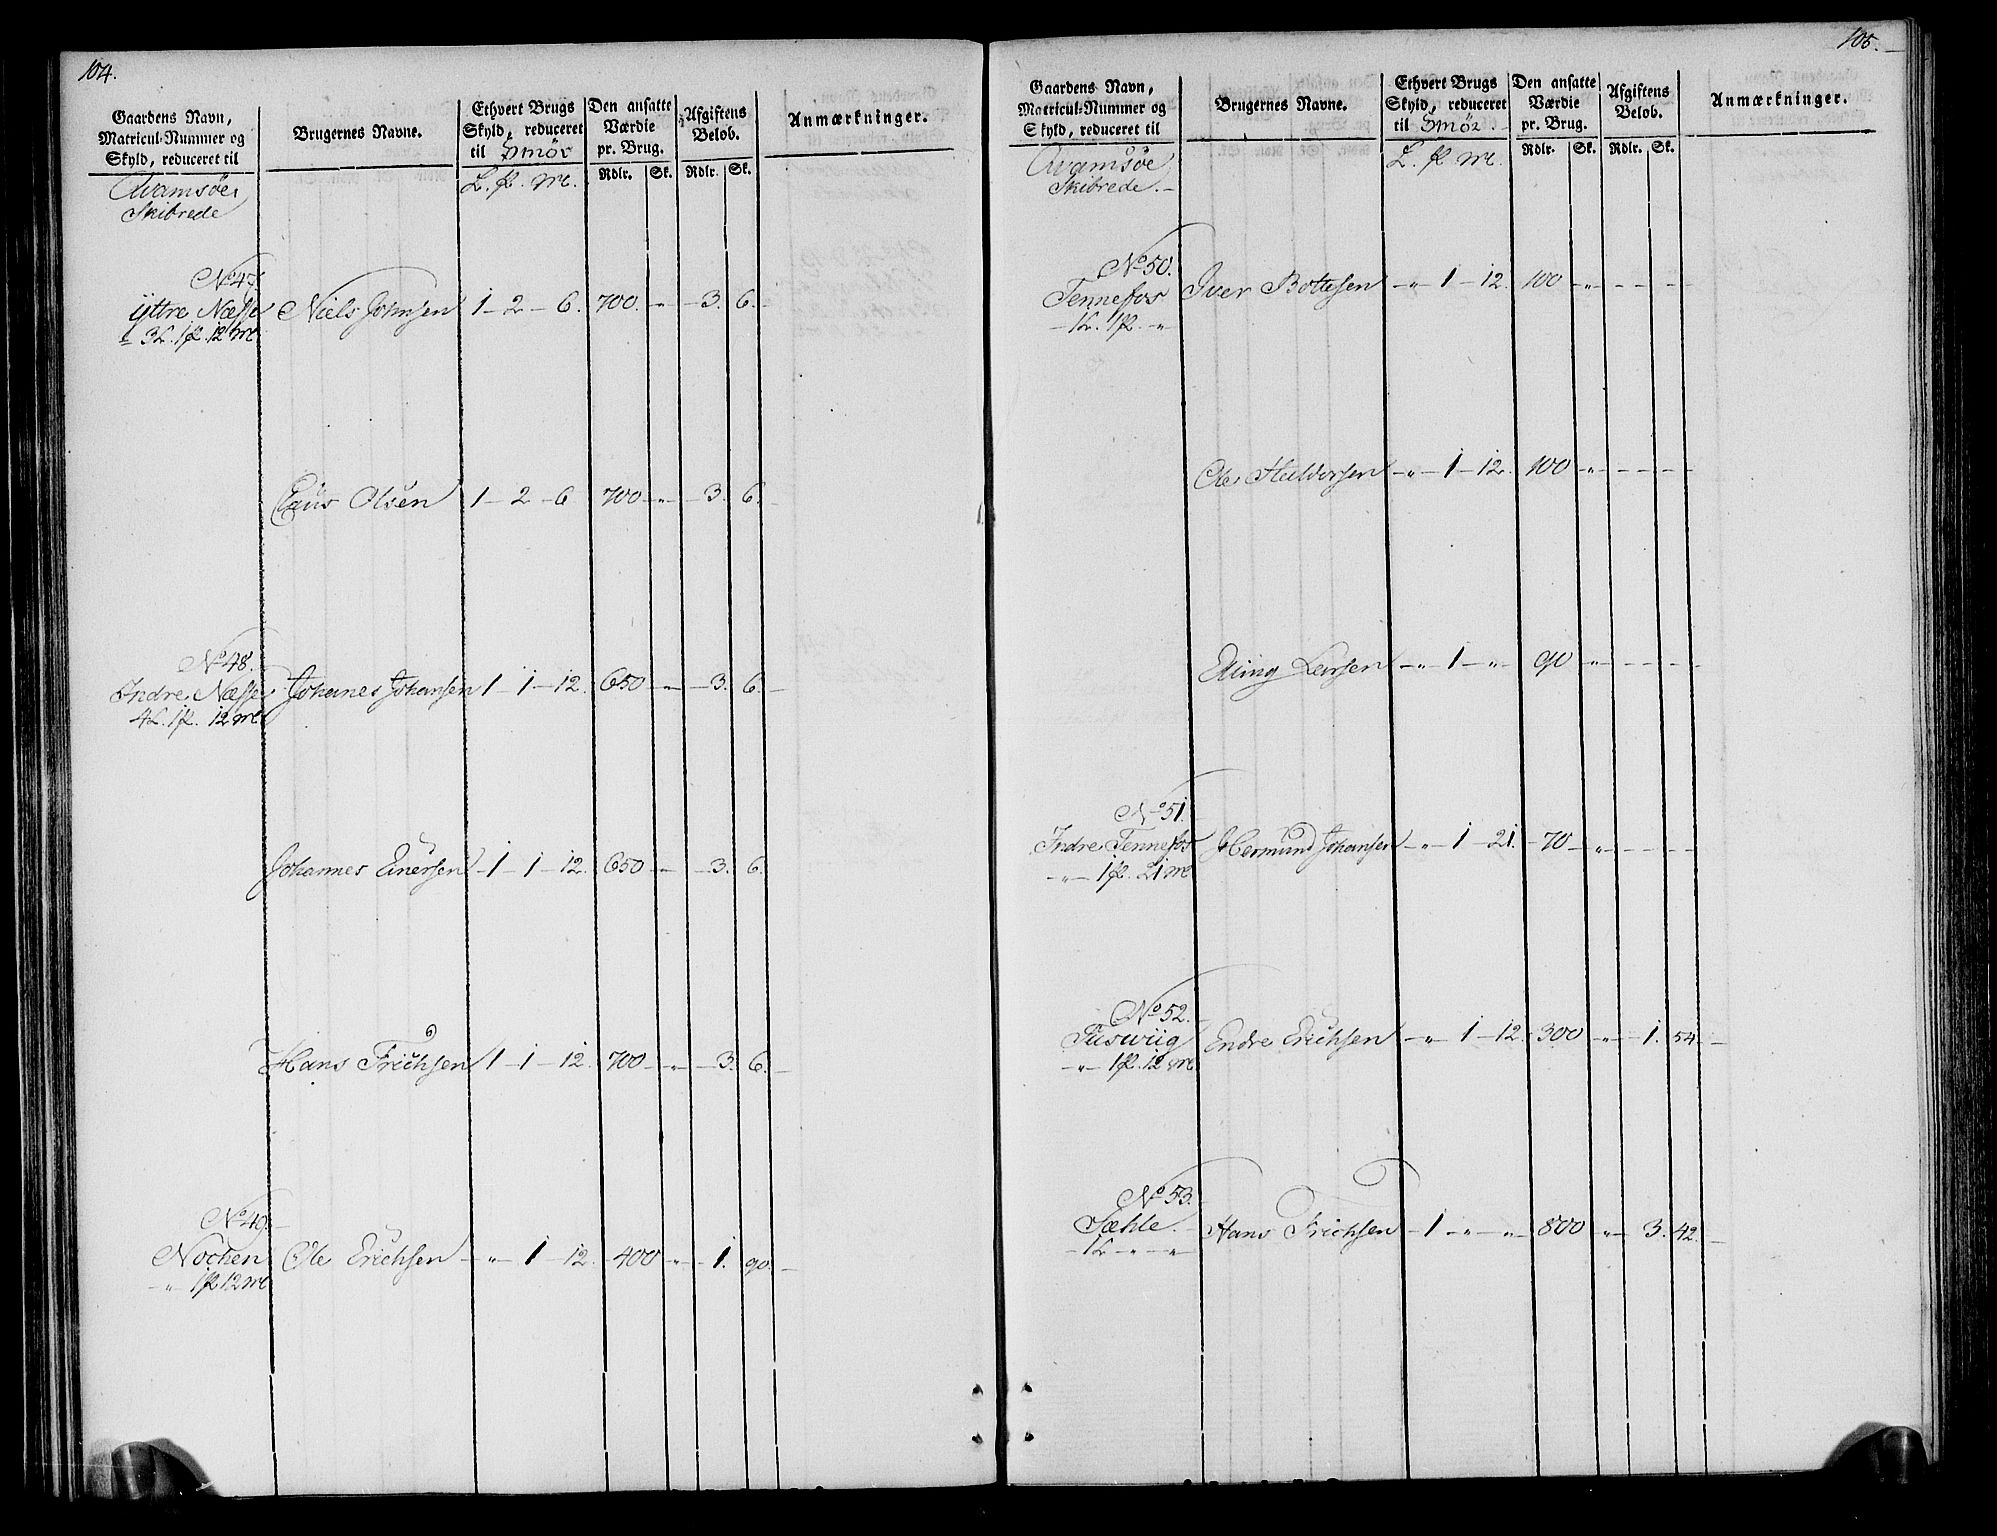 104.
Gaardens Navn, Matricul-Nummer og Skyld, reduceret til
Brugernes Navne.
Ethvert Brugs Skyld, reduceret til Smör
Den ansatte Værdie pr. Brug.
Afgiftens Belob.
Anmærkninger.
Qvamsöe Skibrede
L. ℔. mk.
Rdlr. Sk. Rdlr. Sk.
No 47.
Yttre Næsse Niels Johnsen 1 - 2 - 6. 700. " - 3. 6. -
3L. 1℔. 12 mk
Claus Olsen 1 - 2 - 6 700 - " - 3. 6. -
No 48.
Indre Næsse Johanes Johansen 1 - 1 - 12. 650 - " - 3. 6. -
4L. 1℔. 12 mk
Johannes Einersen 1 - 1 - 12. 650 - " - 3. 6.
Hans Frichsen 1 - 1 - 12. 700 - " - 3. 6. -
No 49. -
Nochen Ole Erichsen - " - 1 - 12. 400 - " - 1. 90. -
- " 1℔ 12 mk
105.
Gaardens Navn, Matricul-Nummer og Skyld, reduceret til
Brugernes Navne.
Ethvert Brugs Skyld, reduceret til Smör.
Den ansatte Værdie pr. Brug.
Afgiftens Belob.
Anmærkninger.
Qvamsöe Skibrede. -
L. ℔ mk.
Rdlr. Sk. Rdlr. Sk.
No 50.
Tennefos Iver Bottesen - " 1 - 12. 100 - " - - - -
- 1L. 1℔. - "
Ole Haldorsen - " - 1 - 12. 100 - " - - - -
Elling Larsen - " 1 - " - 90 - " - - - -
No 51.
Indre Tennefos Hermund Johansen - " - 1 - 21. - 70 - " - - - -
- " - 1℔. 21 mk
No 52.
Endre Erichsen - " 1 - 12. 300 - " - 1. 54. -
- " - 1℔. 12 mk.
No 53.
Sæhle. - Hans Frichsen - 1 - " - " - 800 - " - 3. 42. -
- 1L - " - "